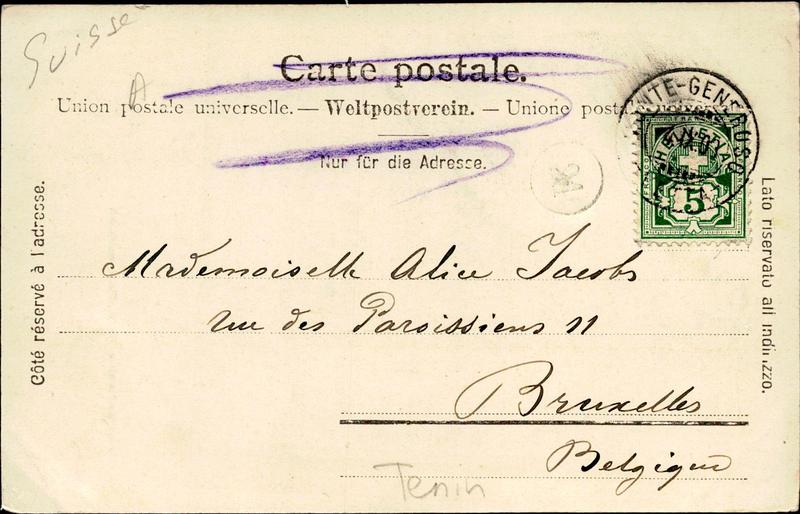 Suisse
Carte postale.
A
Union postale universelle. — Weltpostverein. — Unione
Nur für die Adresse.
5
Côté réservé à l'adresse.
Lato riservato all' indirizzo.
Mademoiselle Alice Jacobs
rue des Paroissiens 11
Bruxelles
Belgique
Tenin